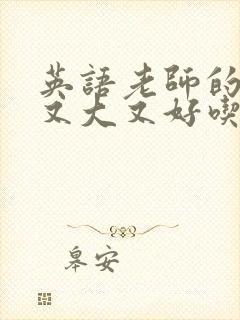 英語老師的
又大又好喫
皋安